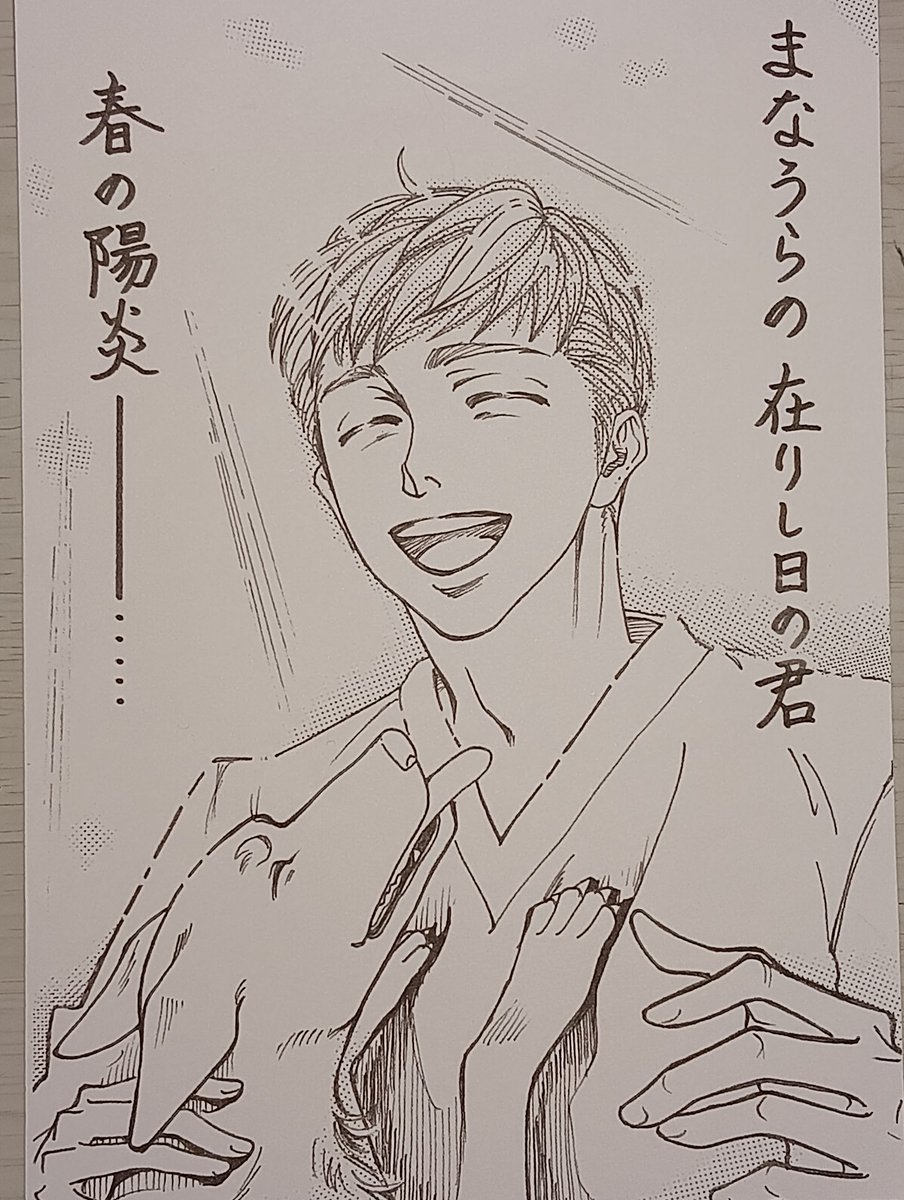 まなうらの在りし日の君
春の陽炎――……